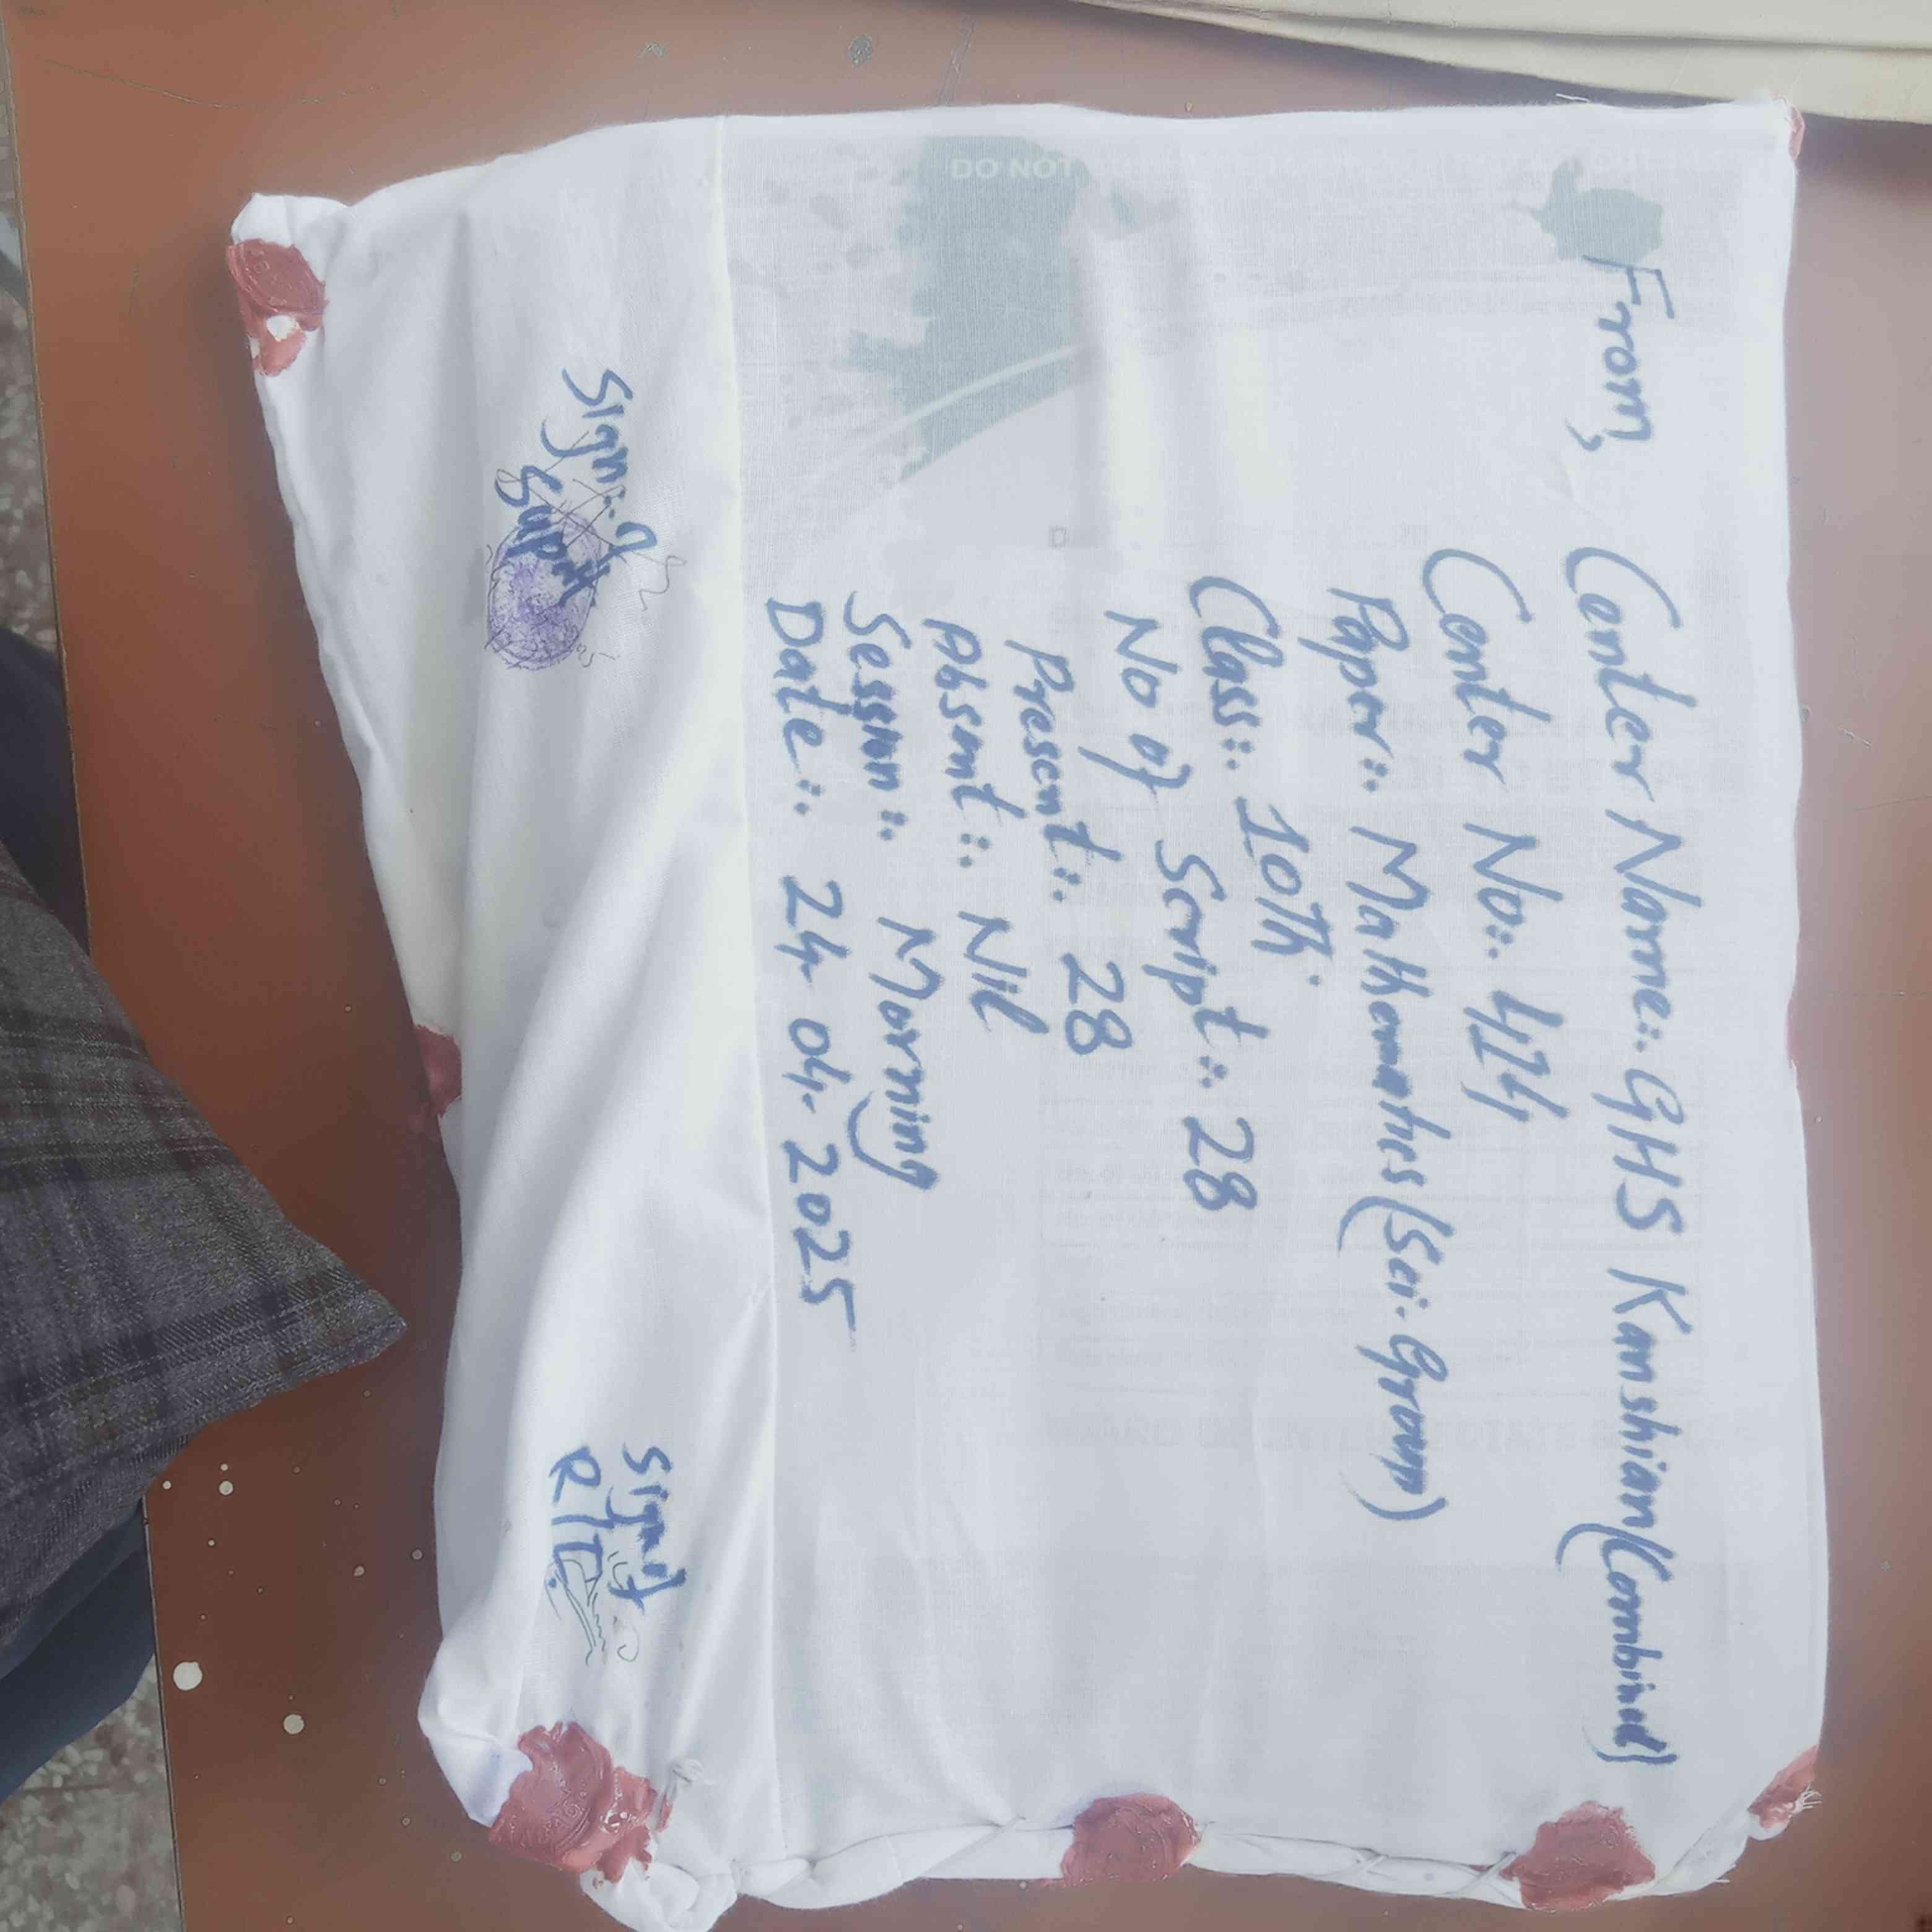 DO NOT
From,
Center Name:. GHS Kanshian (Combined)
Center No:. 414
Paper:. Mathematics (Sci. Group)
Class:. 10th.
No of Script:. 28
Present:. 28
Absent:. Nil
Session:. Morning
Date:. 24-04-2025
Sign:of
Supdt.
Sign:of
R/I